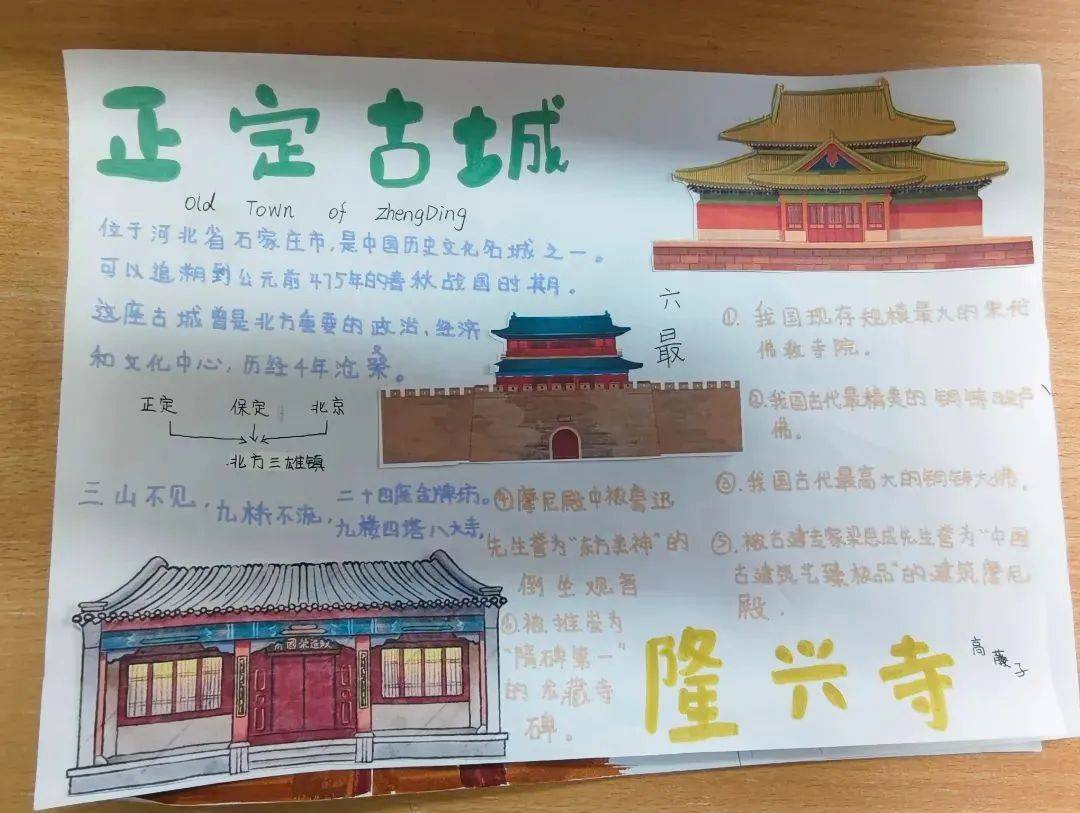 正定古城
Old Town of ZhengDing
位于河北省石家庄市，是中国历史文化名城之一。
可以追溯到公元前475年的春秋战国时期。
这座古城曾是北方重要的政治、经济
和文化中心，历经4年沧桑。
正定 保定 北京
北方三雄镇
三山不见，九桥不流，
二十四座金牌坊。
九楼四塔八大寺，
六最
①. 我国现存规模最大的宋代
佛教寺院。
②.我国古代最精美的铜铸
佛。
③.我国古代最高大的铜铸大佛。
④摩尼殿中被鲁迅
先生誉为“东方美神”的
倒坐观音
⑤.被古建专家梁思成先生誉为“中国
古建筑艺臻极品”的建筑摩尼
殿.
⑥.被推崇为
“隋碑第一”
的龙藏寺
碑。
隆兴寺
高 子